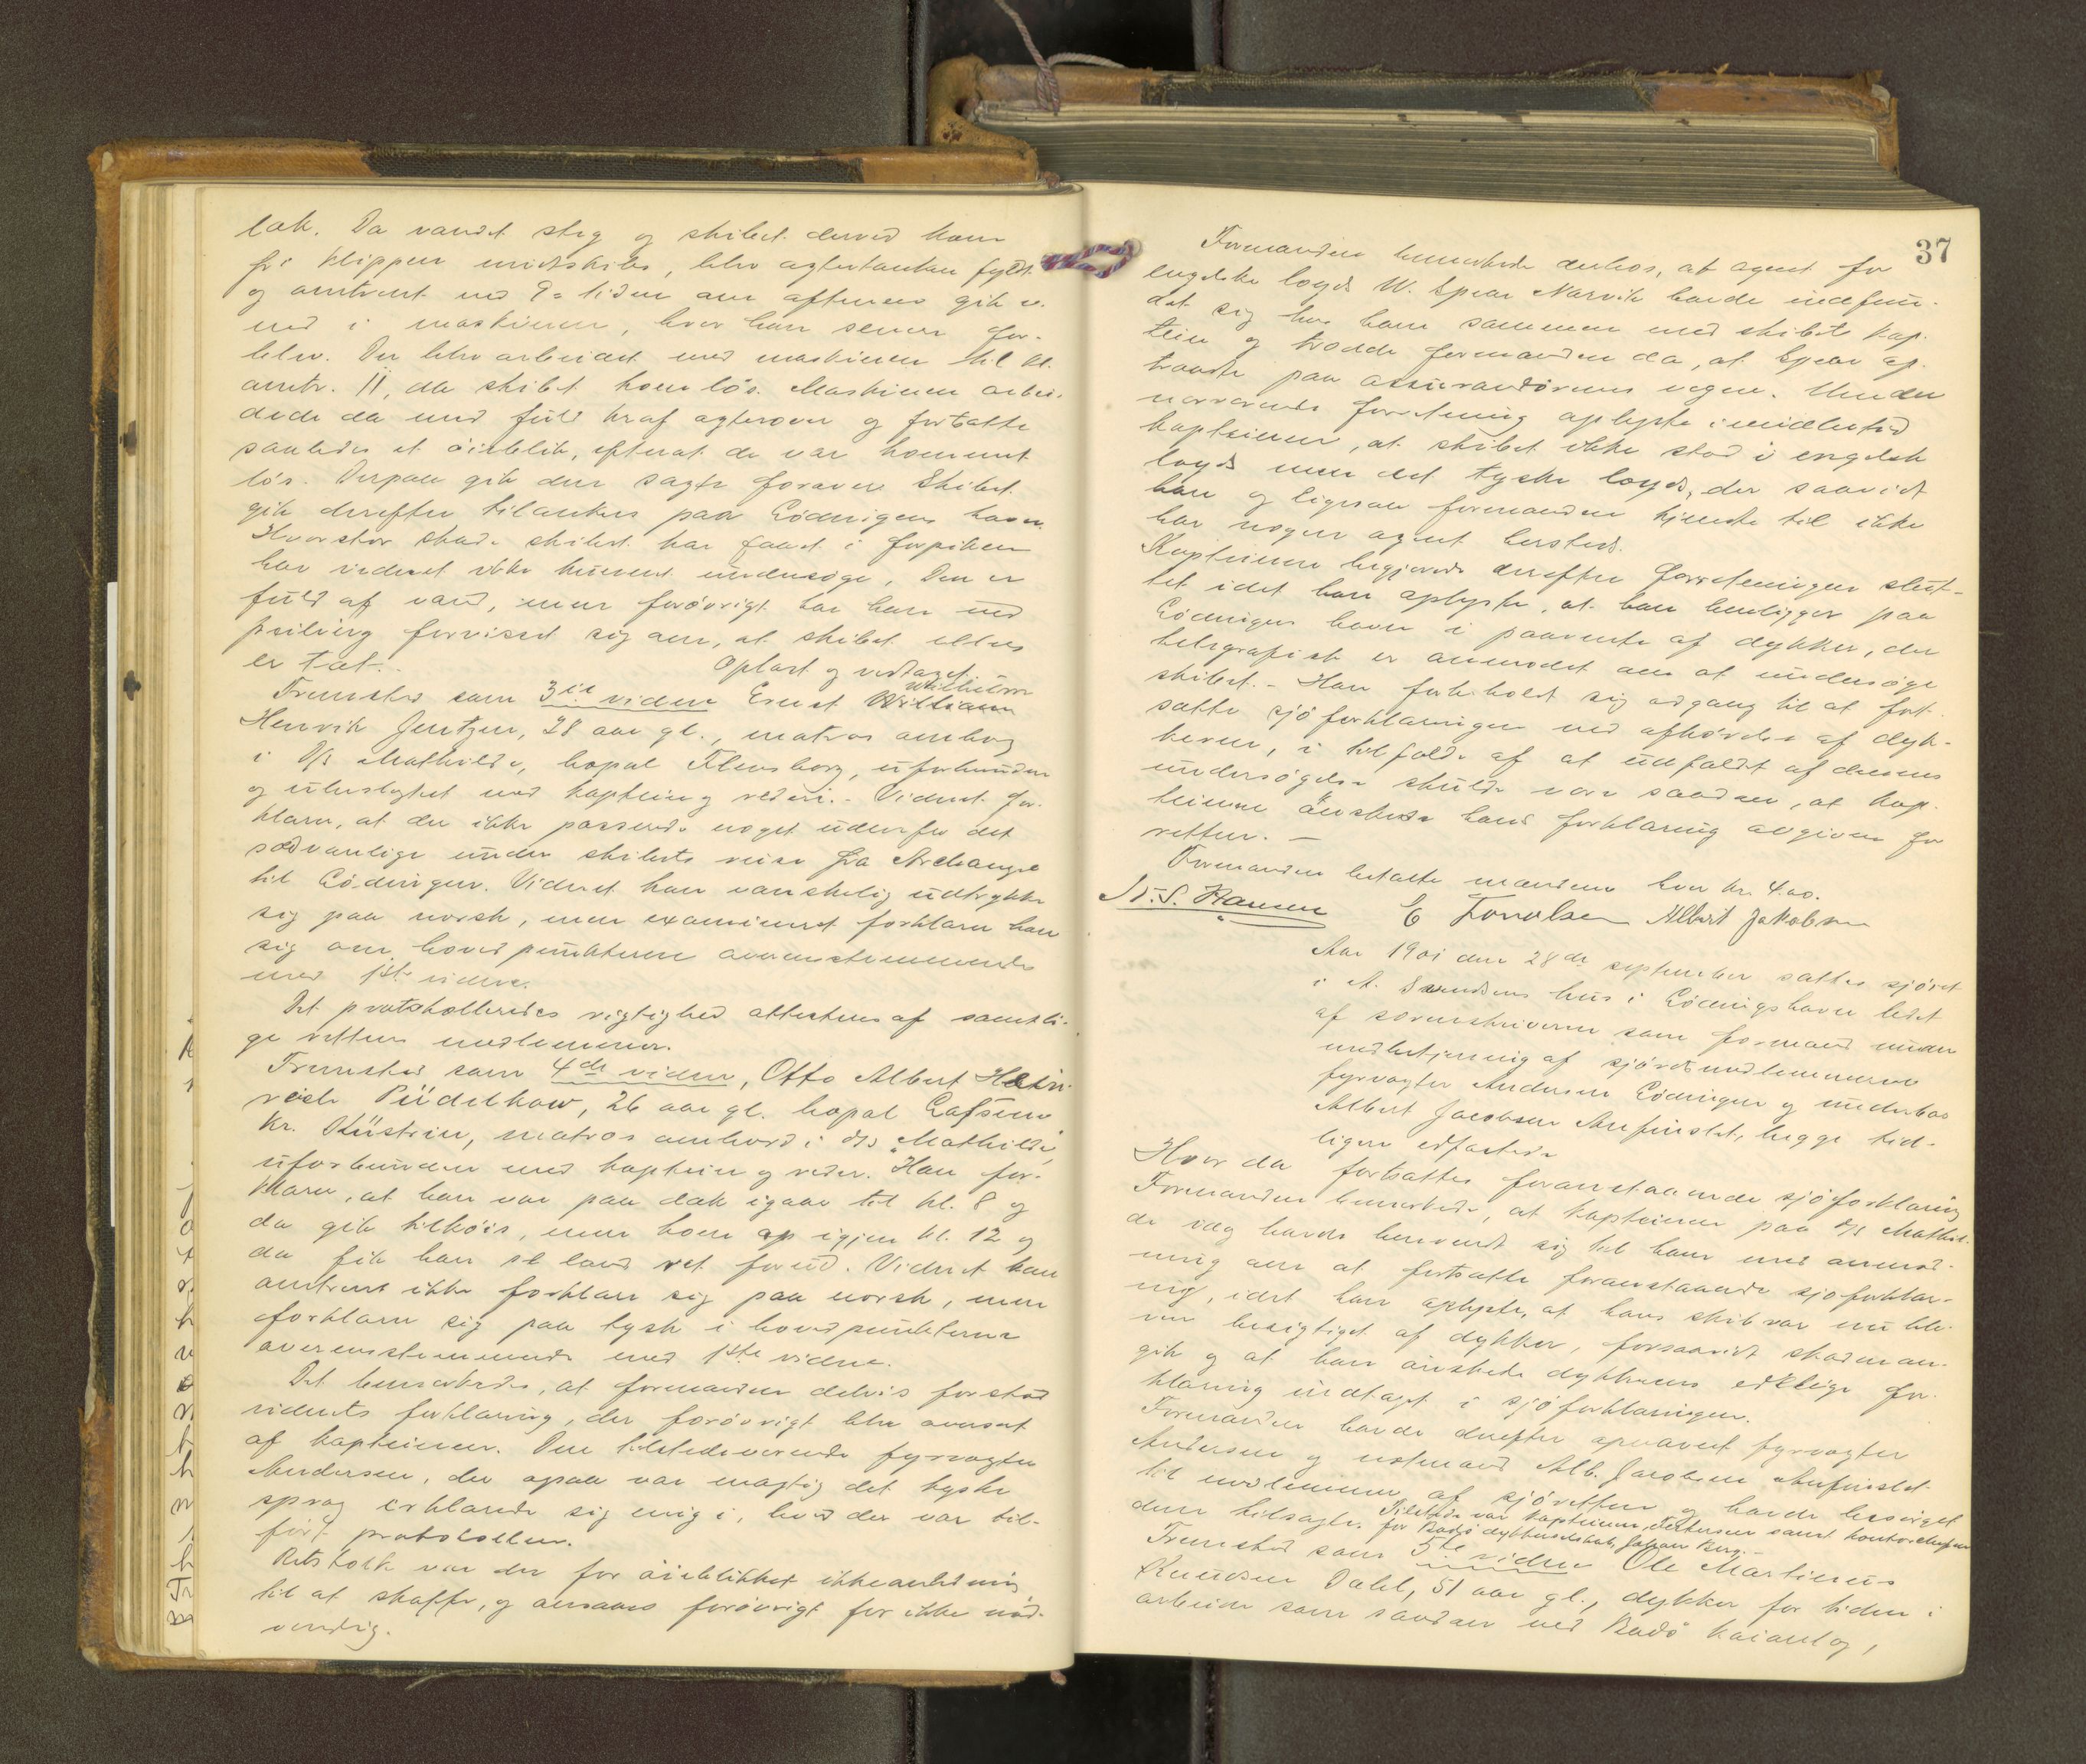 læk. Da vandet steg og skibet derved kom
fri klippen midtskibs, blev agtertanken fyldt
og omtrent ved 9-tiden om aftenen gik v.
ned i maskinen, hvor han senere for-
blev. Der blev arbeidet med maskinen til kl.
omtr. 11, da skibet kom løs. Maskinen arbei-
dede da med fuld kraf agterover og fortsatte
saaledes et øieblik, efterat de var kommet
løs. Derpaa gik den sagte forover. Skibet
gik derefter tilankers paa Lødingens havn.
Hvor stor skade skibet har faaet i forpiken
har vidnet ikke kunnet undersøge. Den er
fuld af vand, men forøvrigt har han ved
peiling forvisset sig om, at skibet ellers
er tæt. Oplæst og vedtaget.
Fremstod som 3die vidne Ernst Wilhelm
Henrik Jentzen, 28 aar gl., matros ombord
i D/S Mathilde, bopæl Flensborg, uforbunden
og ubeslægtet med kaptein og rederi. - Vidnet for-
klarer, at der ikke passerede noget udenfor det
sædvanlige under skibets reise fra Archangel
til Lødingen. Vidnet kan vanskelig udtrykke
sig paa norsk, men examineret forklarer han
sig om hovedpunkterne overensstemmende
med 1ste vidne.
Det protokolleredes rigtighed attesteres af samtli-
ge rettens medlemmer.
Fremstod som 4de vidne, Otto Albert Hein-
rich Püdelkow, 26 aar gl. bopæl
Kr. Küstrin, matros ombord i D/S "Mathilde",
uforbunden med kaptein og reder. Han for-
klarer, at han var paa dæk igaar til kl. 8 og
da gik tilkøis, men kom op igjen kl. 12 og
da fik han se land ret forud. Vidnet kan
omtrent ikke forklare sig paa norsk, men
forklarer sig paa tysk i hovedpunkterne
overensstemmende med 1ste vidne.
Det bemærkedes, at formanden delvis forstod
vidnets forklaring, der forøvrigt blev oversat
af kapteinen. Den tilstedeværende fyrvogter
Andersen, der ogsaa var mægtig det tyske
sprog erklærede sig enig i, hvad der var til-
ført protokollen.
Retstolk var der for øieblikket ikke anledning
til at skaffe, og ansaaes forøvrigt for ikke nød-
vendig.
37
Formanden bemærkede derhos, at agent for
engelske loyds W. Spear Narvik havde indfun-
det sig hos ham sammen med skibets kap-
tein og trodde formanden da, at Spear op-
traadte paa assurandørens vegne. Under
nærværende forretning oplyste imidlertid
kapteinen, at skibet ikke stod i engelsk
loyds men det tyske loyds, der saavidt
han og ligesaa formanden kjendte til ikke
har nogen agent hersteds.
Kapteinen begjærede derefter forretningen slut-
tet idet han oplyste, at han henligger paa
Lødingen havn i paavente af dykker, der
telegrafisk er anmodet om at undersøge
skibet. - Han forbeholdt sig adgang til at fort-
sætte sjøforklaringen ved afhørelse af dyk-
keren, i tilfælde af at udfaldt af dennes
undersøgelse skulde være saadan, at kap-
teinen ønskede hans forklaring avgiven for
retten. -
Formanden betalte mændene hver kr. 4.00.
S. Hansen E Tonolsen Albert Jakobsen
Aar 1901 den 28de september sattes sjøret
i A. Svendsens hus i Lødingshavn ledet
af sorenskriveren som formand under
medbetjening af sjøretsmedlemmerne
fyrvogter Andersen Lødingen og underlos
Albert Jacobsen Anfinslet, begge tid-
ligere edfæstede
Hvor da fortsattes foranstaaende sjøforklaring
Formanden bemærkede, at kapteinen paa D/S Mathil-
de idag havde henvendt sig til ham med anmod-
ning om at fortsætte foranstaaende sjøforklar-
ing, idet han oplyste, at hans skib var nu ble-
ven besigtiget af dykker, forsaavidt skaden an-
gik og at han ønskede dykkerens edelige for-
klaring indtaget i sjøforklaringen.
Formanden havde derefter opnævnt fyrvogter
Andersen og notmand Alb. Jacobsen Anfinslet
til medlemmer af sjøretten og havde besørget
dem tilsagte. Tilstede var kapteinen samt kontorchefen
for Bodø dykkerselskab, Johan Berg. -
Fremstod som 5te vidne Ole Martinus
Knudsen Dahl, 51 aar gl., dykker for tiden i
arbeide som saadan ved Bodø kaianlæg,